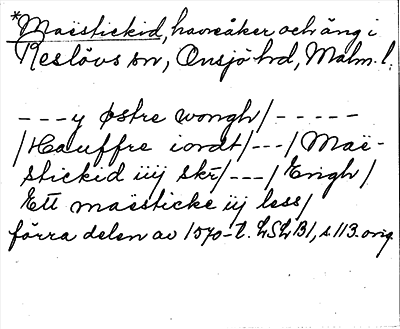 *Maëstickid, havreåker och äng i
Reslövs sn, Onsjö hd, Malm. l.
---y østre wongh/-----
/Hauffre iordt/---/Maë-
stickid iiij skr/---/Engh/
Ett maësticke iij less/
förra delen av 1570-t. LSLB1, s. 113. orig.